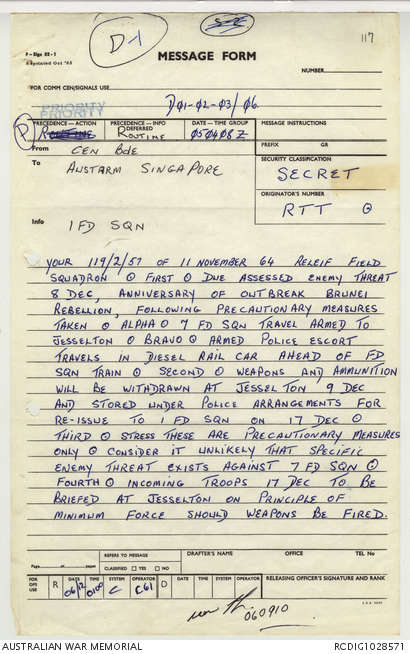 D-1
117
F-Sigs 22-1
MESSAGE FORM
NUMBER
FOR COMM CEN/SIGNALS USE
D01-02-03/06
PRIORITY
PRIORITY
P
PRECEDENCE—ACTION
ROUTINE
PRECEDENCE—INFO
DEFERRED
ROUTINE
DATE—TIME GROUP
050408Z
MESSAGE INSTRUCTIONS
PREFIX GR
From CEN BDE
To AUSTARM SINGAPORE
SECURITY CLASSIFICATION
SECRET
ORIGINATOR'S NUMBER
RTT ⊙
Info 1 FD SQN
YOUR 119/2/57 OF 11 NOVEMBER 64 RELEIF FIELD
SQUADRON ⊙ FIRST ⊙ DUE ASSESSED ENEMY THREAT
8 DEC, ANNIVERSARY OF OUTBREAK BRUNEI
REBELLION, FOLLOWING PRECAUTIONARY MEASURES
TAKEN ⊙ ALPHA ⊙ 7 FD SQN TRAVEL ARMED TO
JESSELTON ⊙ BRAVO ⊙ ARMED POLICE ESCORT
TRAVELS IN DIESEL RAIL CAR AHEAD OF FD
SQN TRAIN ⊙ SECOND ⊙ WEAPONS AND AMMUNITION
WILL BE WITHDRAWN AT JESSELTON 9 DEC
AND STORED UNDER POLICE ARRANGEMENTS FOR
RE-ISSUE TO 1 FD SQN ON 17 DEC ⊙
THIRD ⊙ STRESS THESE ARE PRECAUTIONARY MEASURES
ONLY ⊙ CONSIDER IT UNLIKELY THAT SPECIFIC
ENEMY THREAT EXISTS AGAINST 7 FD SQN ⊙
FOURTH ⊙ INCOMING TROOPS 17 DEC TO BE
BRIEFED AT JESSELTON ON PRINCIPLE OF
MINIMUM FORCE SHOULD WEAPONS BE FIRED.
Page of pages
REFERS TO MESSAGE
CLASSIFIED YES NO
DRAFTER'S NAME
OFFICE
TEL No
FOR OPS USE
R
DATE 06/12
TIME 0100
SYSTEM C
OPERATOR C61
D
DATE
TIME
SYSTEM
OPERATOR
RELEASING OFFICER'S SIGNATURE AND RANK
060910
AUSTRALIAN WAR MEMORIAL
RCDIG1028571